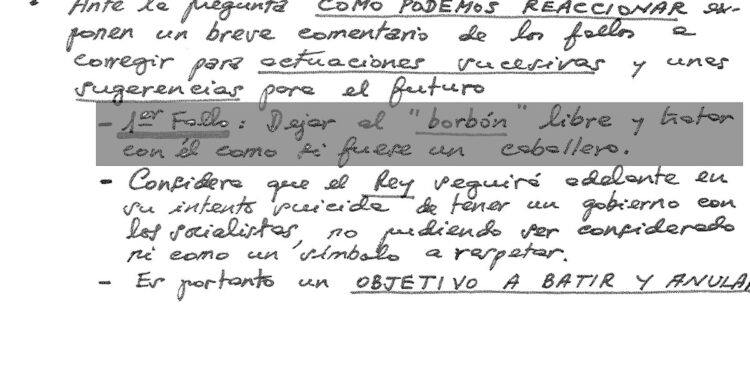 • Ante la pregunta COMO PODEMOS REACCIONAR ex-
ponen un breve comentario de los fallos a
corregir para actuaciones sucesivas y unas
sugerencias para el futuro
- 1er Fallo: Dejar al "borbón" libre y tratar
con él como si fuese un caballero.
- Considera que el Rey seguirá adelante en
su intento suicida de tener un gobierno con
los socialistas, no pudiendo ser considerado
ni como un símbolo a respetar.
- Es portanto un OBJETIVO A BATIR Y ANULAR